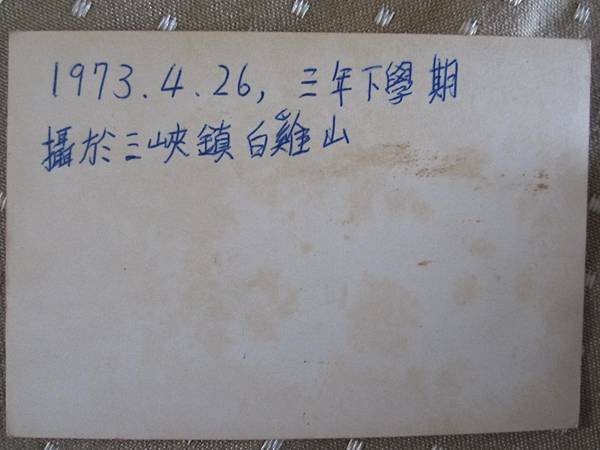 1973.4.26, 三年下學期
攝於三峽鎮白雞山